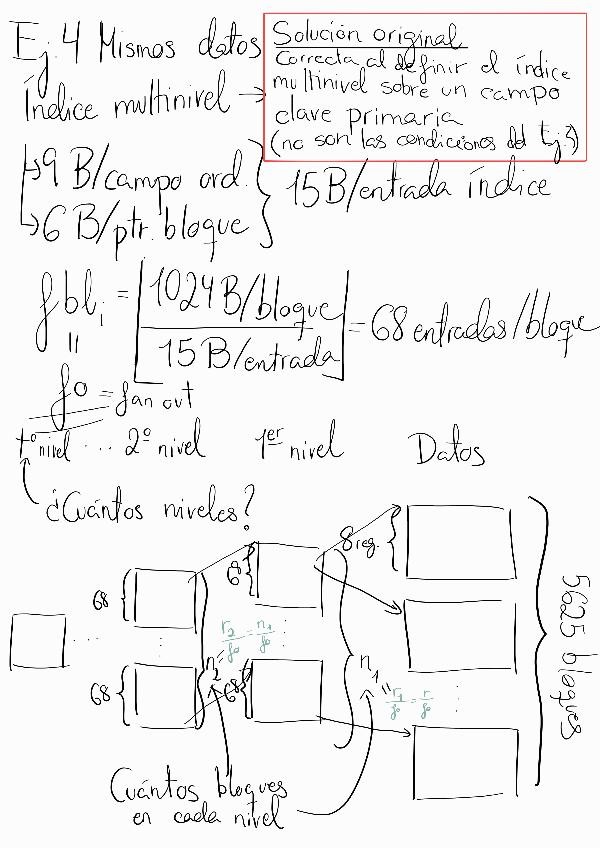 Ej. 4 Mismos datos
Índice multinivel →
Solución original
Correcta al definir el índice
multinivel sobre un campo
clave primaria
(no son las condiciones del Ej.3)
↳ 9 B/campo ord.
↳ 6 B/ptr. bloque
15 B/entrada índice
fbl_i = ⌊1024 B/bloque / 15 B/entrada⌋ = 68 entradas/bloque
"
fo = fan out
tº nivel ... 2º nivel 1er nivel Datos
¿Cuántos niveles?
8 reg.
68
68
68
68
r₂/fo = n₁/fo
n₂
n₁
r₁/fo = r/fo
5625 bloques
Cuántos bloques
en cada nivel